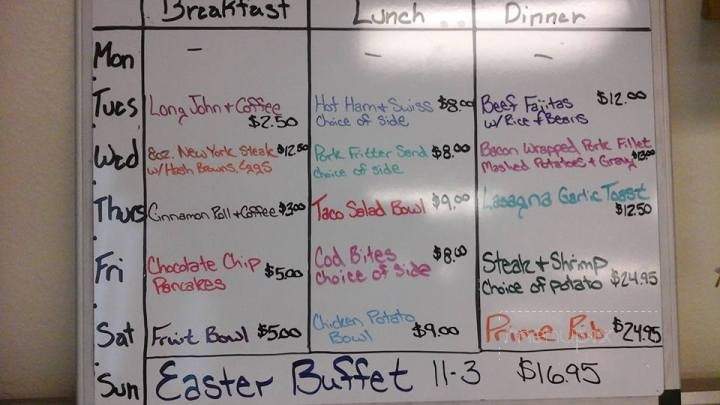 Breakfast Lunch .. Dinner
Mon - - -
Tues Long John + Coffee $2.50 Hot Ham + Swiss $8.00 Choice of Side Beef Fajitas $12.00 w/ Rice + Beans
Wed 8oz. New York Steak $12.50 w/ Hash Browns, Eggs Pork Fritter Sand $8.00 choice of side Bacon Wrapped Pork Fillet Mashed Potatoes + Gravy $13.00
Thurs Cinnamon Roll + Coffee $3.00 Taco Salad Bowl $9.00 Lasagna Garlic Toast $12.50
Fri Chocolate Chip Pancakes $5.00 Cod Bites $8.00 Choice of Side Steak + Shrimp Choice of potato $24.95
Sat Fruit Bowl $5.00 Chicken Potato Bowl $9.00 Prime Rib $24.95
Sun Easter Buffet 11-3 $16.95